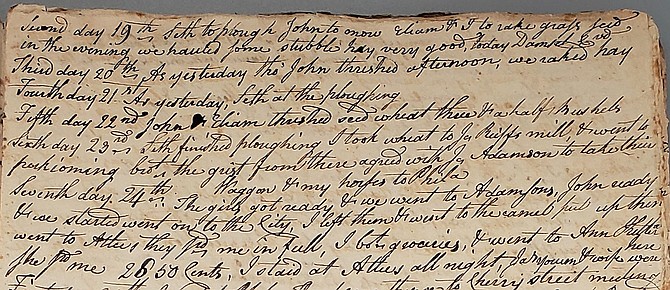 Second day 19th Seth to plough John to mow Eliam & I to rake grass seed
in the evening we hauled some stubble hay very good, today
Third day 20th, As yesterday tho' John thrashed afternoon, we raked hay
Fourth day 21st As yesterday, Seth at the ploughing
Fifth day 22nd John & Eliam thrashed seed wheat three & a half Bushels
Sixth day 23rd Seth finished ploughing I took wheat to Js Reiffs mill & went to
the grist from there agreed with Js Adamson to take their
Waggon & my horses to Phila
Seventh day 24th The girls got ready & we went to Adamsons, John ready
& we started went on to the City, I left them & went to the camel put up then
went to they pd me in full, I bot groceries, & went to Ann
She pd me 26,50 Cents, I staid at all night, & wife were here
to Cherry street meeting